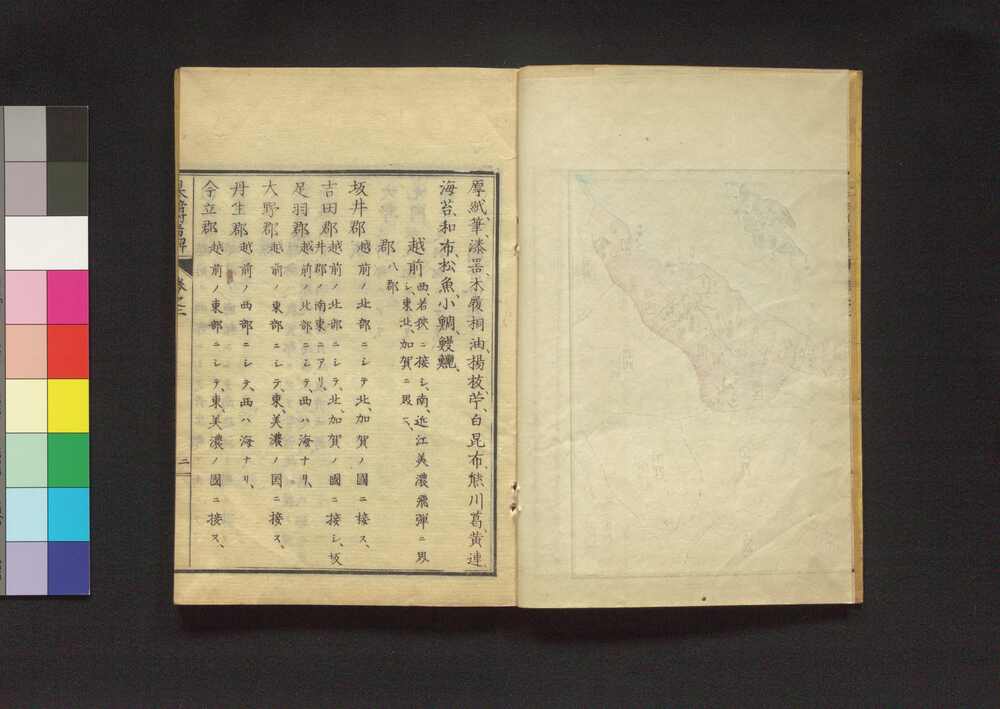 厚紙、筆、漆器、木履、桐油、揚枝、苧、白昆布、熊川葛、黄連、
海苔、和布、松魚、小鯛、鰻鱺、
越前 西若狭ニ接シ、南、近江美濃飛彈ニ界シ、東北、加賀ニ界ス、
郡 八郡
坂井郡 越前ノ北部ニシテ北、加賀ノ國ニ接ス、
吉田郡 越前ノ北部ニシテ、北、加賀ノ國ニ接シ、坂井郡ノ南東ニアリ、
足羽郡 越前ノ北部ニシテ、西ハ海ナリ、
大野郡 越前ノ東部ニシテ、東、美濃ノ国ニ接ス、
丹生郡 越前ノ西部ニシテ、西ハ海ナリ、
今立郡 越前ノ東部ニシテ、東美濃ノ國ニ接ス、
二